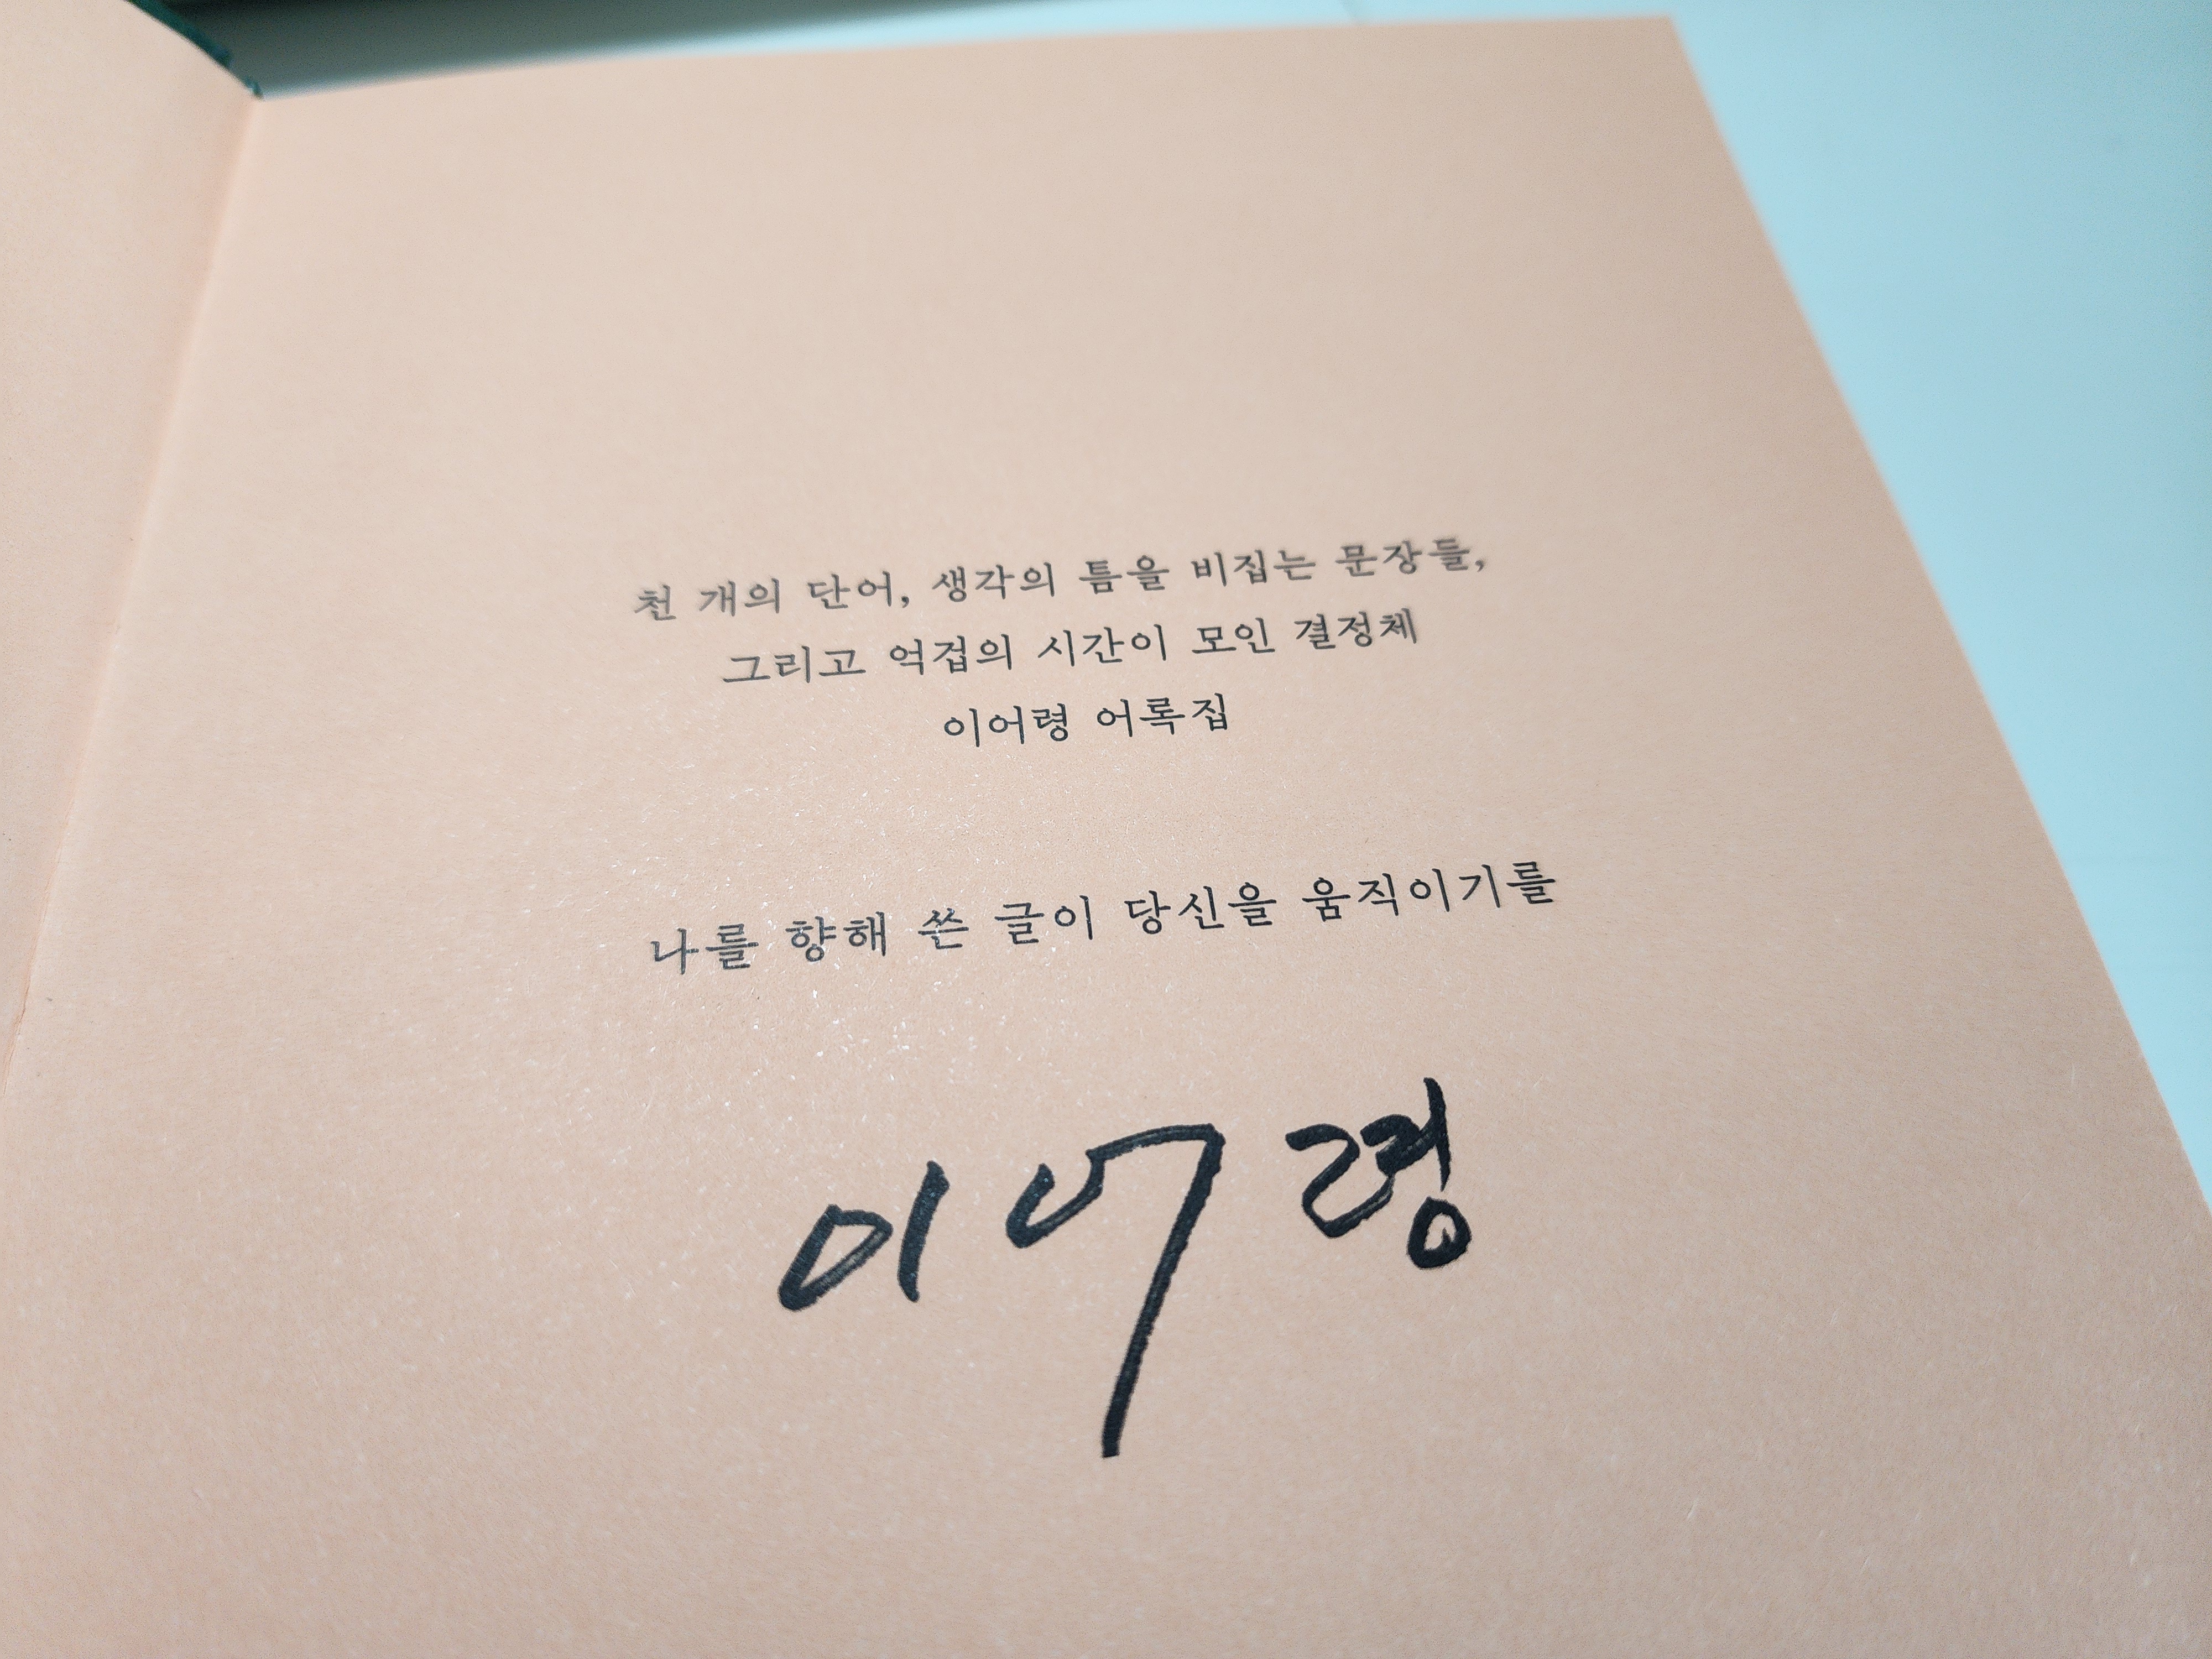 천 개의 단어, 생각의 틈을 비집는 문장들,
그리고 억겁의 시간이 모인 결정체
이어령 어록집
나를 향해 쓴 글이 당신을 움직이기를
이어령